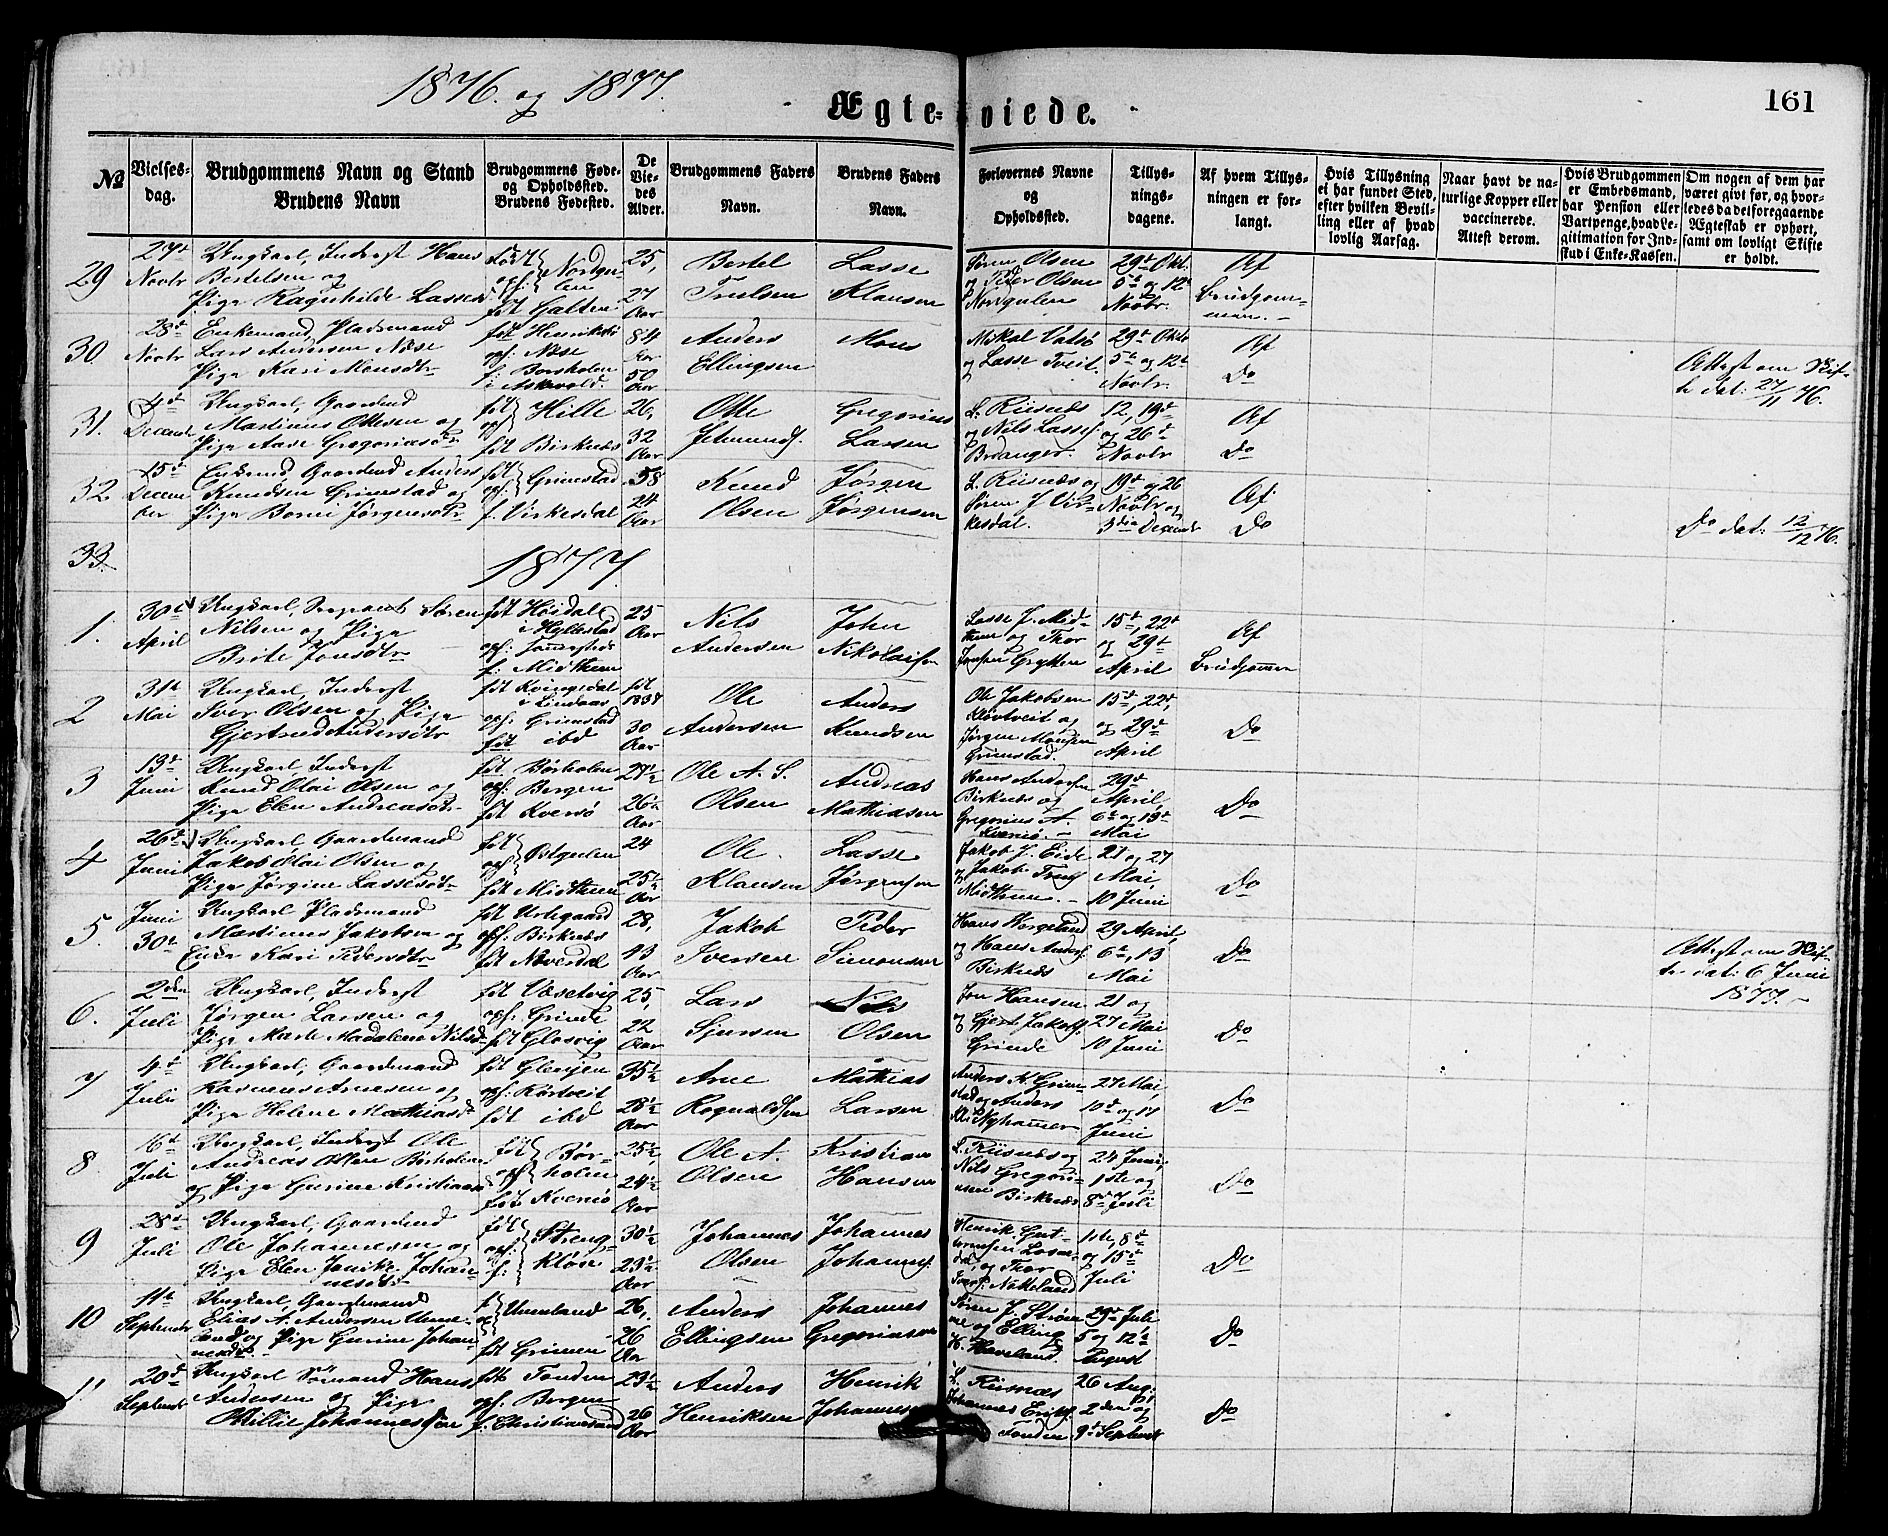 1876. og 1877.
Ægteviede.
161
№
Vielsesdag.
Brudgommens Navn og Stand
Brudens Navn
Brudgommens Føde- og Opholdssted.
Brudens Fødested.
De Viedes Alder.
Brudgommens Faders Navn.
Brudens Faders Navn.
Forlovernes Navne og Opholdssted.
Tillysningsdagene.
Af hvem Tillysningen er forlangt.
Hvis Tillysning ei har fundet Sted, efter hvilken Bevilling eller af hvad lovlig Aarsag.
Naar havt de naturlige Kopper eller vaccinerede. Attest derom.
Hvis Brudgommen er Embedsmand, har Pension eller Vartpenge, hvad Legitimation for Indskud i Enke-Kassen.
Om nogen af dem har været givt før, og hvorledes da det foregaaende Ægteskab er ophørt, samt om lovligt Skifte er holdt.
29
27de Novbr
Ungkarl, Inderst Hans
Bertelsen og
Pige Ragnhilde Lassed.
født
oph: Nordgulen
fdt Galten
25,
27 Aar
Bertel
Trulsen
Lasse
Klausen
Søren Olsen
og Peder Olsen
Nordgulen
29de Okt.
5te og 12te
Novbr.
Af
Brudgommen.
30.
28de Novbr
Enkemand, Pladsmand
Lars Andersen Næse
Pige Kari Monsdtr
oph: Næse
f. Borholen
i Askvold.
84 Aar
50 Aar
Anders
Ellingsen
Mons
Mikal Vatsø
og Lasse Tveit.
29de Oktbr
5te og 12te
Novbr.
Af
Do
Attest om Skifte dat: 27/11 76.
31.
4de Decembr
Ungkarl, Gaardmd
Martinus Ottesen og
Pige Aase Gregoriusdtr
fdt
oph Hille
fdt Birknæs
26,
32 Aar
Otte
Jetmunds.
Gregorius
Larsen
L. Riisnæs
og Nils Lasses.
Brdanger.
12, 19de
og 26de
Novbr
Af
Do
32
15de December
Enkemd Gaardmd Anders
Knudsen Grimestad og
Pige Borni Jørgensdtr
fdt
oph: Grimestad
f. Virkesdal
58
24 Aar
Knud
Olsen
Jørgen
Jørgensen
L. Riisnæs og
Søren J Virkesdal.
19de og 26
Novbr og
3die Decembr
Af
Do
Do dat: 12/12 76.
33.
1877
1.
30te April
Ungkarl, Sergeant Søren
Nilsen og Pige
Brite Jonsdtr
fdt Høidal
i Hyllestad
f: Midthun
25 Aar
Nils
Andersen
John
Nikolaisen
Lasse J. Midthun og Thor
Jonsen Grytten
15de, 22de
og 29de
April
Af
Brudgommen
2
31te Mai
Ungkarl, Inderst
Iver Olsen og Pige
Gjertrud Andersdtr
fdt Kvingedal
i Lindaas
oph: Grimstad
fdt ibd
fdt 1838
30 Aar
Ole
Andersen
Anders
Knudsen
Ole Jakobsen
Kløvtveit og
Jørgen Monsen
Grimstad.
15de, 22de,
og 29de
April
Do
3
13de Juni
Ungkarl, Inderst
Knud Olai Olsen og
Pige Elen Andreasdtr
fdt Børholen
oph: Bergen
fdt Kversø
27½
26½ Aar
Ole A. S.
Olsen
Andreas
Mathiasen
Hans Anders.
Birknæs og
Gregorius A.
29de
April,
6te og 13de
Mai
Do
4
26de Juni
Ungkarl, Gaardmand
Jakob Olai Olsen og
Pige Jørgine Lassesdtr
fdt
oph Østgulen
fdt Midthun
24
25½ Aar
Ole.
Klausen
Lasse
Jørgensen
Jakob J. Eide
og Jakob
Midthun.
21 og 27
Mai,
10 Juni
Do
5.
Juni 30te
Ungkarl Pladsmand
Martinus Jakobsen og
Enke Kari Pedersdtr
fdt Urlegaard
oph: Birknæs
fdt Nævesdal
28,
Aar
Jakob
Iversen
Peder
Simonsen
Hans Norgeland
og Hans Anders.
Birknæs
29 April,
6te, 13
Mai
Do
Attest om Skifte dat: 6 Juni 1877.
6.
2den Juli
Ungkarl, Inderst
Jørgen Larsen og
Pige Marte Madalene Nilsd.
fdt Vasetvig
oph: Grinde
fdt Glosvig
25,
22 Aar
Lars
Sjursen
Nils
Olsen
Jon Hansen
og Gjert Jakobs.
Grinde
21 og
27 Mai
10 Juni
Do
7
4de Juli
Ungkarl, Gaardmand
Rasmus Arnesen og
Pige Helene Mathiasd.
fdt Glenjen
oph: Kørtveit
fdt ibd
35½
28½ Aar
Arne
Rognaldsen
Mathias
Larsen
Anders K. Grimstad og Anders
Nyhamer
27 Mai,
10de og 17
Juni
Do
8
16de Juli
Ungkarl, Inderst Ole
Andreas Olsen Børholen
og Pige Gurine Kristiansd.
fdt
oph Børholen
fdt Kversø
25½,
24½ Aar
Ole A.
Olsen
Kristian
Hansen
L. Riisnæs og
Nils Gregoriusen Birknæs
24 Juni,
1ste og
8de Juli
Do
9
28de Juli
Ungkarl, Gaardmd
Ole Johannesen og
Pige Elen Janikke Johannesdtr
fdt
oph:
f: Steng-
30½
23½ Aar
Johannes
Olsen
Johannes
Johanness.
Henrik
og Thor
Nætteland
1ste, 8de
og 15de
Juli
Do
10
11te Septembr
Ungkarl, Gaardmand
Elias A. Andersen Unneland og Pige Gurine Johannesdtr
Unneland
fdt Grinen
26,
26 Aar
Anders
Ellingsen
Johannes
Gregoriusen
Søren J. Strømme og Elling
H. Haveland.
29de Juli
5 og 12te
August
Do
11
20de Septembr
Ungkarl Sømand Hans
Andersen og Pige
Millie Johannesen
fdt Fonden
oph: Bergen
f. Christiansund
29½
26 Aar
Anders
Henriksen
Henrik
Johannesen
L. Riisnæs
Johannes Eriks.
Fonden
26 Aug:
2den og
9de Septembr
Do